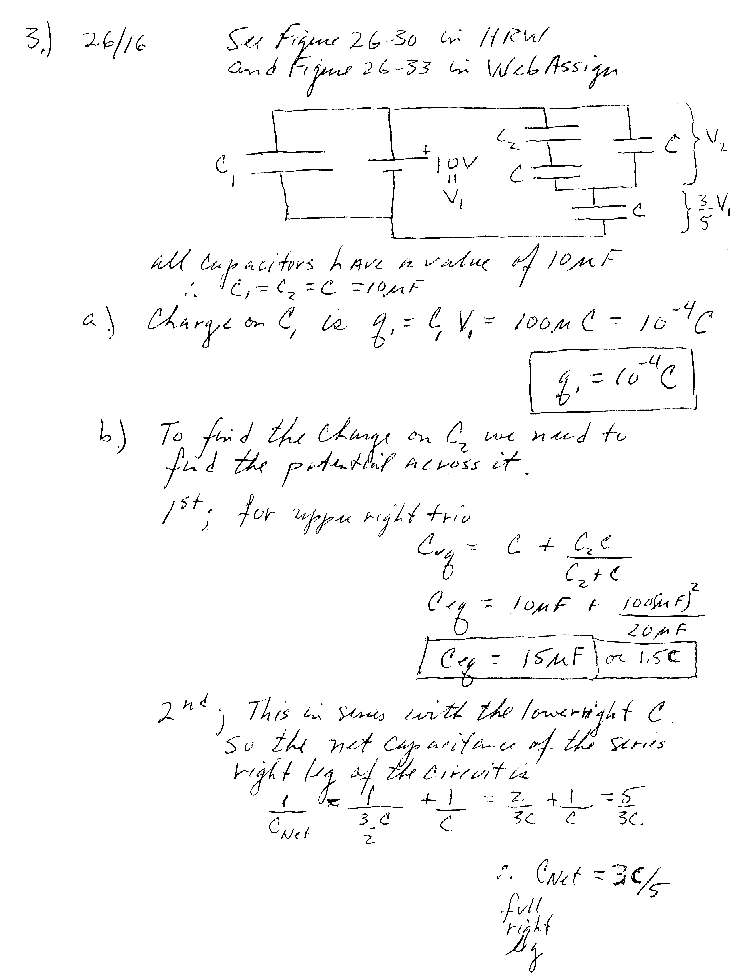 3.) 26/16 See Figure 26-30 in HRW
and Figure 26-33 in WebAssign
C₁ + 10V = V₁ C₂ C C } V₂
C } 3/5 V₁
all capacitors have a value of 10 μF
∴ C₁ = C₂ = C = 10 μF
a.) Charge on C₁ is q₁ = C₁ V₁ = 100 μC = 10⁻⁴ C
q₁ = 10⁻⁴ C
b.) To find the charge on C₂ we need to
find the potential across it.
1st; for upper right trio
Ceq = C + C₂C / (C₂ + C)
Ceq = 10 μF + 100(μF)² / 20 μF
Ceq = 15 μF or 1.5C
2nd; This in series with the lower right C.
So the net capacitance of the series
right leg of the circuit is
1/CNet = 1/(3/2 C) + 1/C = 2/3C + 1/C = 5/3C.
∴ CNet = 3C/5
full
right
leg